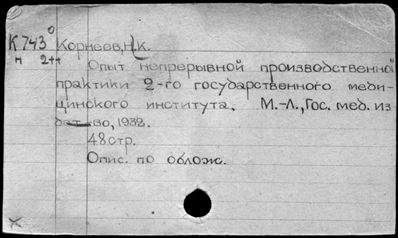 К 743 Корнеев, Н.К.
п 2++
Опыт непрерывной производственной
практики 2-го государственного меди-
цинского института. М.-Л., Гос. мед. из
дат-во, 1932.
48 стр.
Опис. по облож.